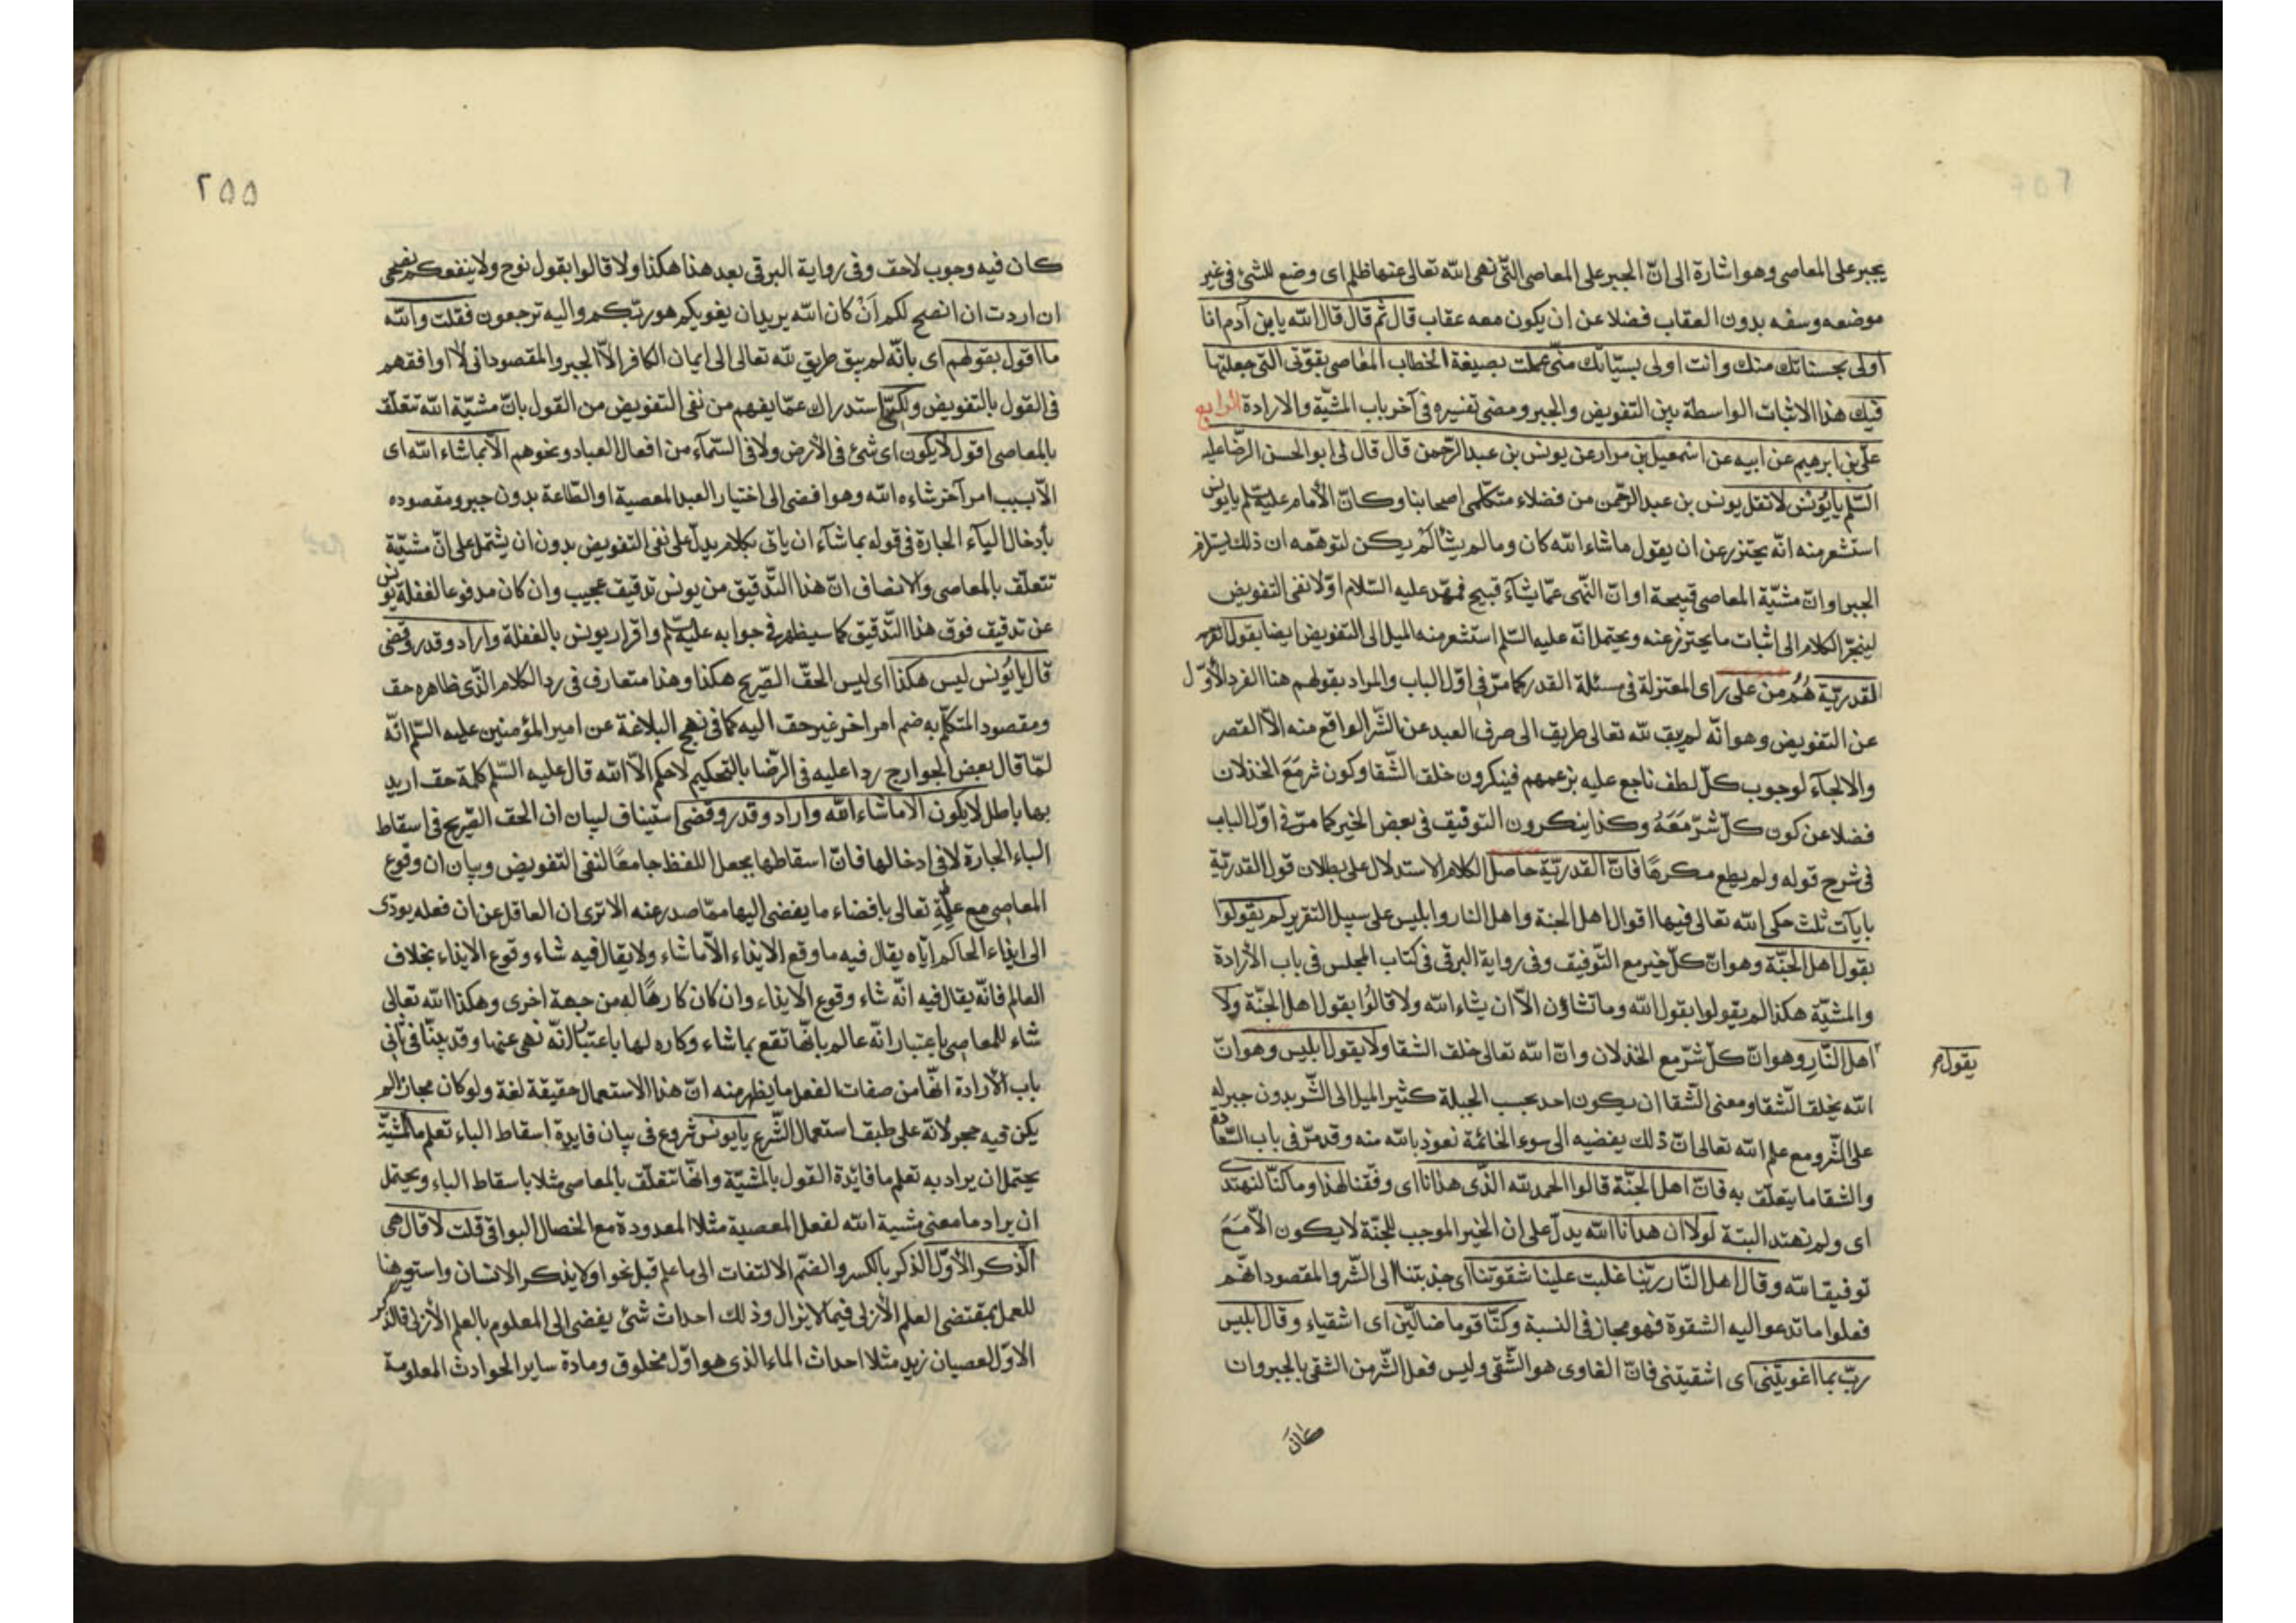 يجبر على المعاصى وهو اشارة الى انّ الجبر على المعاصى التّى نهى الله تعالى عنها ظلم اى وضع للشئ فى غير
موضعه وسفه بدون العقاب فضلا عن ان يكون معه عقاب قال ثم قال قال الله يابن آدم انا
اولى بحسناتك منك وانت اولى بسيّاتك منّى عملت بصيغة الخطاب المعاصى بقوّتى التى جعلتها
فيك هذا الاثبات الواسطة بين التفويض والجبر ومضى تفسيره فى آخر باب المشيّة والارادة الرابع
علّى بن ابرهيم عن ابيه عن اسمعيل بن مرار عن يونس بن عبد الرّحمن قال قال لى ابو الحسن الرّضا عليه
السّلم يا يُونس لا تقل يونس بن عبد الرّحمن من فضلاء متكلّمى اصحابنا وكانّ الأمام عليه سلم يا يونس
استشعر منه انّه يحترز عن ان يقول ما شاء الله كان وما لم يشألم يكن لتوهّمه ان ذلك يستلزم
الجبر او انّ مشيّة المعاصى قبيحة او انّ النّهى عمّا يشآء قبيح فمهّد عليه السّلام اوّلا نفى التفويض
لينجرّ الكلام الى اثبات ما يحترز عنه ويحتمل انّه عليه السّلم استشعر منه الميل الى التفويض ايضا بقول
القدريّة هُمُ من على راى المعتزلة فى مسئلة القدر كما مرّ فى اوّل الباب والمراد بقولهم هنا الفرد الأوّل
عن التفويض وهو انّه لم يبق لله تعالى طريق الى صرف العبد عن الشّر الواقع منه الاّ القصر
والالجآء لوجوب كلّ لطف ناجع عليه بزعمهم فينكرون خلق الشّقا وكون شر مَعَ الخذلان
فضلا عن كون كلّ شرّ مَعَهُ وكذا ينكرون التوفيق فى بعض الخير كما مرّ فى اوّل الباب
فى شرح قوله ولم يطع مكرهًا فانّ القدريّة حاصل الكلام الاستدلال على بطلان قول القدريّة
بايآت ثلث حكى الله تعالى فيها اقوال اهل الجنة واهل النار وابليس على سبيل التقرير لم يقولوا
بقول اهل الجنّة وهو انّ كلّ خير مع التّوفيق وفى رواية البرقى فى كتاب المجلس فى باب الأرادة
والمشيّة هكذا لم يقولوا بقول الله وما تشاؤن الاّ ان يشاء الله ولا قالُوا بقول اهل الجنّة ولا
يقول
اهل النّارِ وهو انّ كلّ شرّ مع الخذلان وانّ الله تعالى خلق الشقا ولا يقول ابليس وهو انّ
الله يخلق الشّقا ومعنى الشّقا ان يكون احد بحسب الجبلة كثير الميل الى الشّر بدون جبر له
على الشّر ومع علم الله تعالى انّ ذلك يفضيه الى سوء الخاتمة نعوذ بالله منه وقد مرّ فى باب السّعادة
والشقا ما يتعلّق به فانّ اهل الجنّة قالوا الحمد لله الذّى هدانا اى وفقنا لهذا وما كنّا لنهتدى
اى ولم نهتد البتة لولا ان هدانا الله يدلّ على ان الخير الموجب للجنّة لا يكون الاّ مَعَ
توفيق الله وقال اهل النّار ربّنا غلبت علينا شقوتنا اى جذبتنا الى الشّر والمقصود انهّم
فعلوا ما تدعو اليه الشقوة فهو مجاز فى النسبة وكنّا قوما ضالّين اى اشقياء وقال ابليس
ربّ بما اغويتنى اى اشقيتنى فانّ الغاوى هو الشّقى وليس فعل الشّر من الشقى بالجبر وان
كان
٢٥٥
كان فيه وجوب لاحق وفى رواية البرقى بعد هذا هكذا ولا قالوا بقول نوح ولا ينفعكم نصحى
ان اردت ان انصح لكم اَنْ كان الله يريد ان يغويكم هو ربّكم واليه ترجعون فقلت والله
ما اقول بقولهم اى بانّه لم يبق طريق لله تعالى الى ايمان الكافر الاّ الجبر والمقصود انى لا اوافقهم
فى القول بالتفويض ولكنّى استدراك عمّا يفهم من نفى التفويض من القول بانّ مشيّة الله تتعلّق
بالمعاصى اقول لا يكون اى شئ فى الأرض ولا فى السّمآء من افعال العباد ونحوهم الاّ بما شاء الله اى
الاّ بسبب امر آخر شاءه الله وهو افضى الى اختيار العبد المعصية او الطّاعة بدون جبر ومقصوده
بأدخال الباء الجارة فى قوله بما شآء ان ياتى بكلام يدلّ على نفى التفويض بدون ان يشتمل على انّ مشيّة
تتعلّق بالمعاصى والانصاف انّ هذا التّدقيق من يونس تدقيق عجيب وان كان مدفوعا لغفلة يونس
عن تدقيق فوق هذا التّدقيق كما سيظهر فى جوابه عليه سلم واقرار يونس بالغفلة واراد وقدر وقضى
قال يا يُونس ليس هكذا اى ليس الحقّ الصّريح هكذا وهذا متعارف فى رد الكلام الذّى ظاهره حق
ومقصود المتكلّم به ضم امر اخر غير حق اليه كما فى نهج البلاغة عن امير المؤمنين عليه السّلم انّه
لمّا قال بعض الخوارج ردا عليه فى الرّضا بالتحكيم لا حكم الاّ الله قال عليه السّلم كلمة حق اريد
بها باطل لا يكون الا ما شاء الله واراد وقدر وقضى استيناف لبيان ان الحق الصّريح فى اسقاط
الباء الجارة لا فى ادخالها فانّ اسقاطها يجعل اللفظ جامعًا لنفى التفويض وبيان ان وقوع
المعاصى مع علمه تعالى بافضاء ما يفضى اليها ممّا صدر عنه الا ترى ان العاقل عن ان فعله يودّى
الى ايذاء الحاكم ايّاه يقال فيه ما وقع الايذاء الاّ ما شاء ولا يقال فيه شاء وقوع الايذاء بخلاف
العالم فانّه يقال فيه انّه شاء وقوع الايذاء وان كان كارهًا له من جهة اخرى وهكذا الله تعالى
شاء للمعاصى باعتبار انّه عالم بانهّا تقع بما شاء وكاره لها باعتبار انّه نهى عنها وقد بيّنّا فى ثانى
باب الأرادة انهّا من صفات الفعل ما يظهر منه انّ هذا الاستعمال حقيقة لغة ولو كان مجازا لم
يكن فيه حجر لانّه على طبق استعمال الشّرع يا يونس شروع فى بيان فايدة اسقاط الباء تعلم ما المشيّة
يحتمل ان يراد به تعلم ما فائدة القول بالمشيّة وانهّا تتعلّق بالمعاصى مثلا باسقاط الباء ويحتمل
ان يراد ما معنى مشية الله لفعل المعصية مثلا المعدودة مع الخصال البواقى قلت لا قال هى
الذّكر الأوّل الذكر بالكسر والضّم الالتفات الى ما علم قبل نحو اولا يذكر الانسان واستعير هنا
للعمل بمقتضى العلم الأزلى فيما لا يزال وذلك احداث شئ يفضى الى المعلوم بالعلم الأزلى فالذكر
الاوّل لعصيان زيد مثلا احداث الماء الذى هو اوّل مخلوق ومادة ساير الحوادث المعلومة